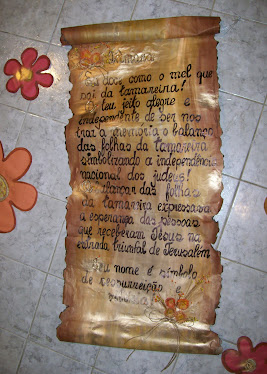 Tâmara!
És doce como o mel que
sai da tamareira!
O teu jeito alegre e
independente de ser nos
traz a memória o balanço
das folhas da tamareira
simbolizando a independência
nacional dos judeus!
O dançar das folhas
da tamareira expressava
a esperança das pessoas
que receberam Jesus na
entrada triunfal de Jerusalém
Seu nome é símbolo
de ressurreição e